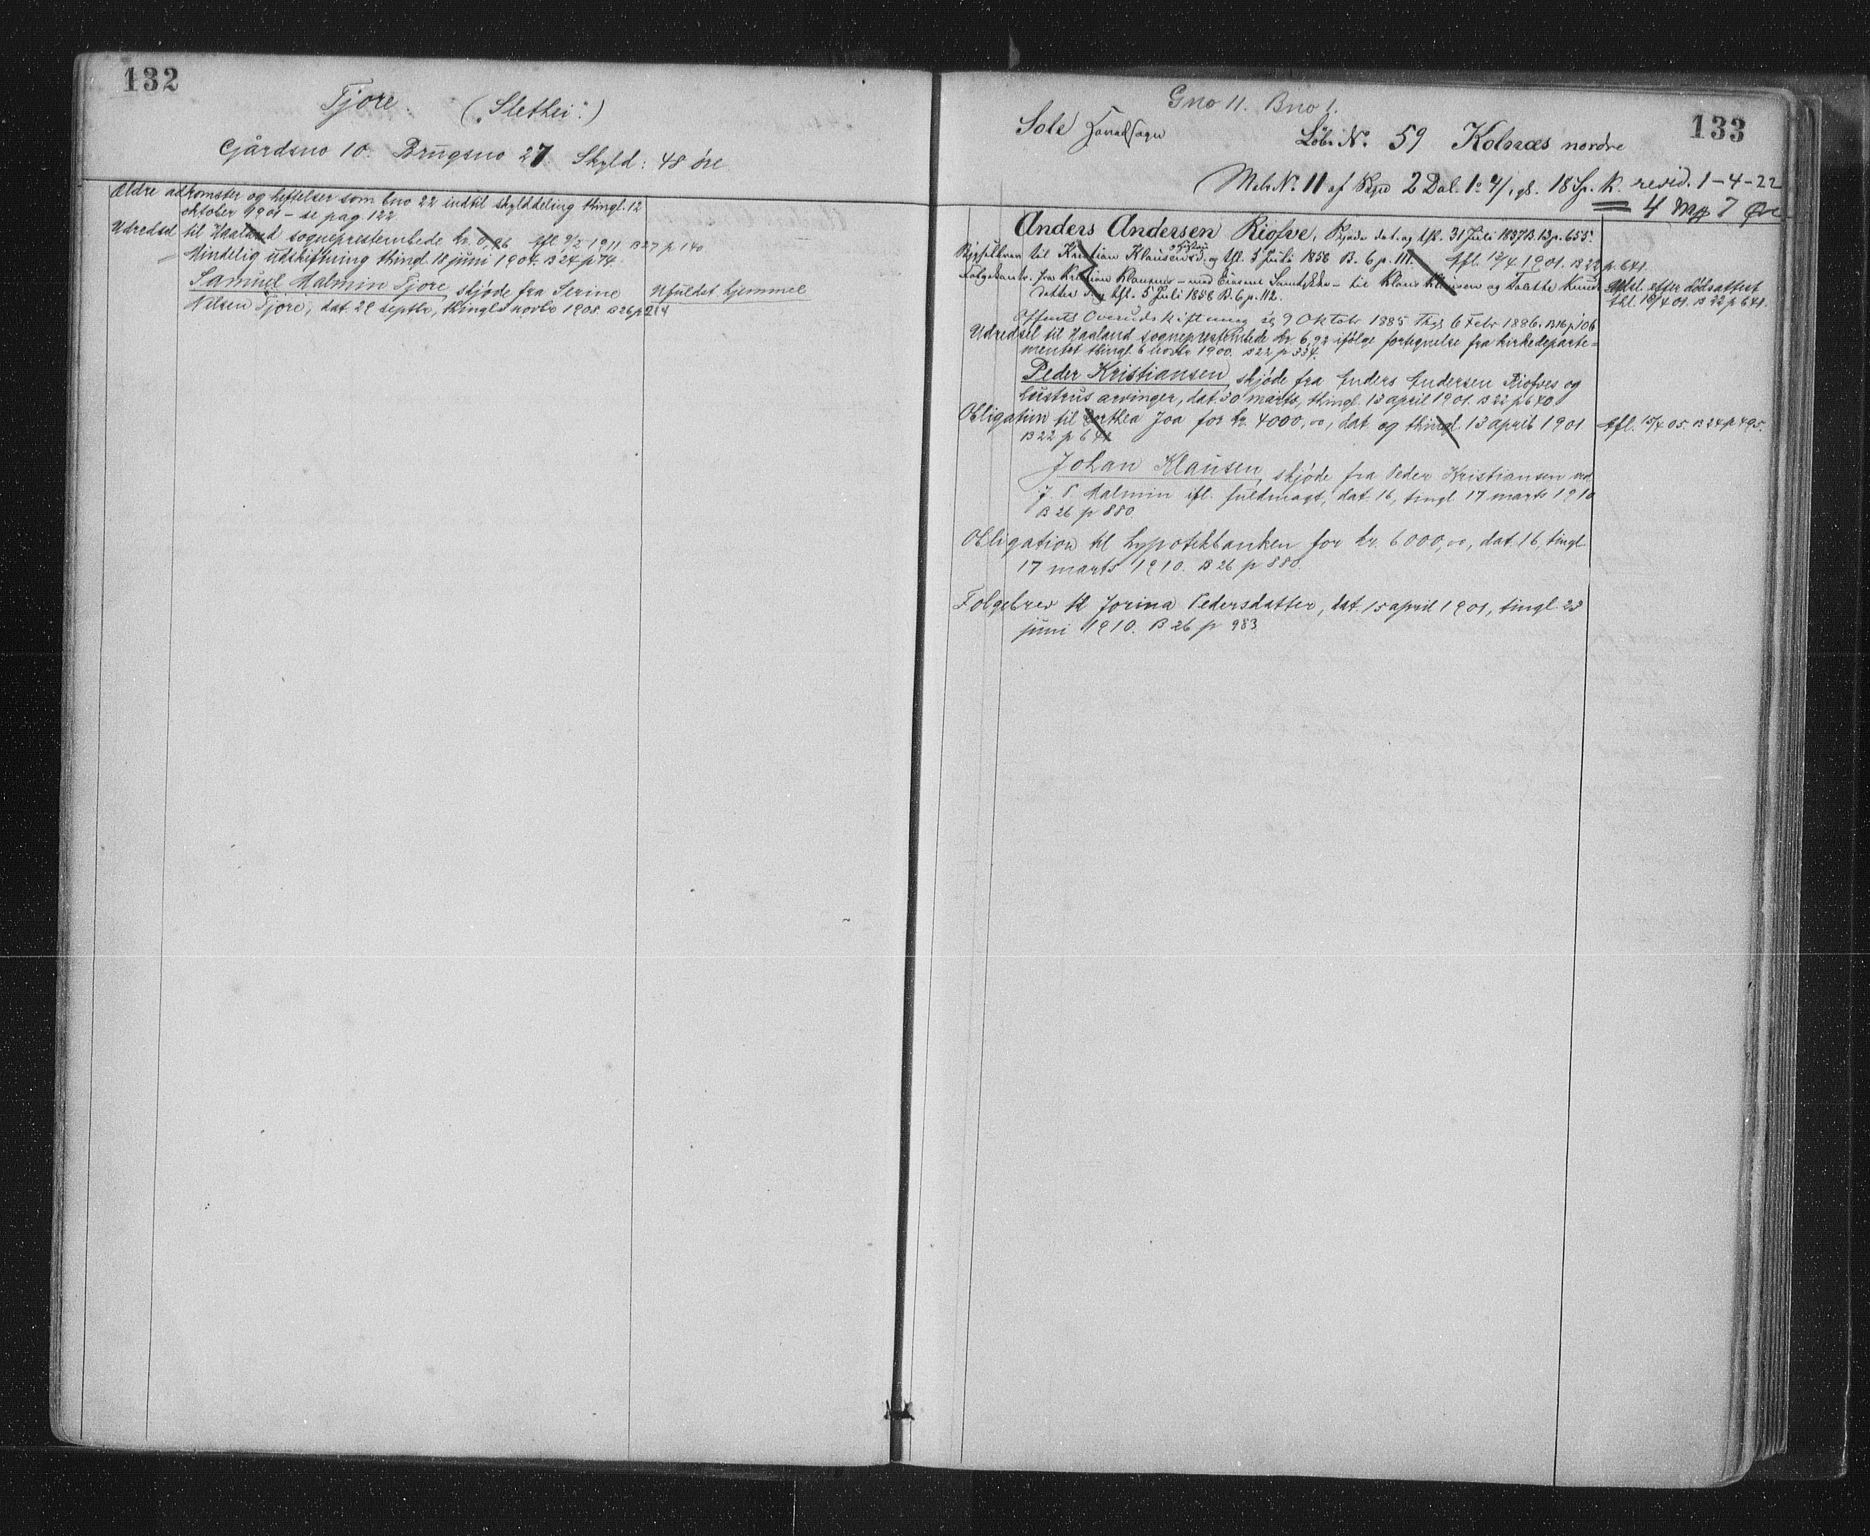 132
Tjore. („Slethei“)
Gårdsno 10. Brugsno 27. Skyld: 48 øre
Ældre adkomster og heftelser som bno 22 indtil skylddeling thingl. 12
oktober 1901 – se pag 122.
Udredsel til Haaland sogneprestembede kr. 0,26 Afl 9/2 1911 B 27 p 140
Mindelig udskiftning thingl. 18 juni 1904. B 24 p 74.
Samuel Malmin Tjore, skjøde fra Serine Ufuldst. hjemmel
Nilsen Tjore, dat. 29 septbr, thingl novbr 1908 B 26 p 214
133
Gno 11. Bno 1.
Sole Løb. No. 59 Kolnæs nordre
Mat. No. 11 af 2 Dal. 18 revid. 1-4-22
= 4 Mg 7 Øre
Anders Andersen Riolve, Skjøde dat. og tfl. 31 Juli 1837 B. 13 p. 655.
til Kristian Klausen d. og tfl. 5 Juli 1858 B. 6 p. 111. Afl. 13/4. 1901. B 22 p. 641.
fra Kristian Klausen – med – til Klaus Klausen og Knuds-
datter d. og tfl. 5 Juli 1858 B. 6 p. 112. Afl. efter dødsattest
tfl. 13/4 01. B 22 p 641.
Offentl. Overudskiftning 9 Oktobr 1885 Thgl 6 Febr 1886. B 16 p 106
Udredsel til Haaland sogneprestembede kr 6,92 ifølge fortegnelse fra kirkedeparte-
mentet thingl 6 novbr 1900. B 22 p 334.
Peder Kristiansen, skjøde fra Anders Andersen Riolves og
hustrus arvinger, dat. 30 marts, thingl. 13 april 1901. B 22 p 640
Obligation til Joa for kr. 4000,00, dat og thingl 13 april 1901 Afl. 15/4 05 B 24 p 495.
B 22 p 641
Johan Klausen, skjøde fra Peder Kristiansen ved
J. P. Malmin ifl. fuldmagt, dat. 16, tingl 17 marts 1910
B 26 p 880.
Obligation til hypotekbanken for kr. 6000,00, dat. 16, tingl
17 marts 1910. B 26 p 880.
Folgebrev til Jorina Pedersdatter, dat. 15 april 1901, tingl 23
juni 1910. B 26 p 983